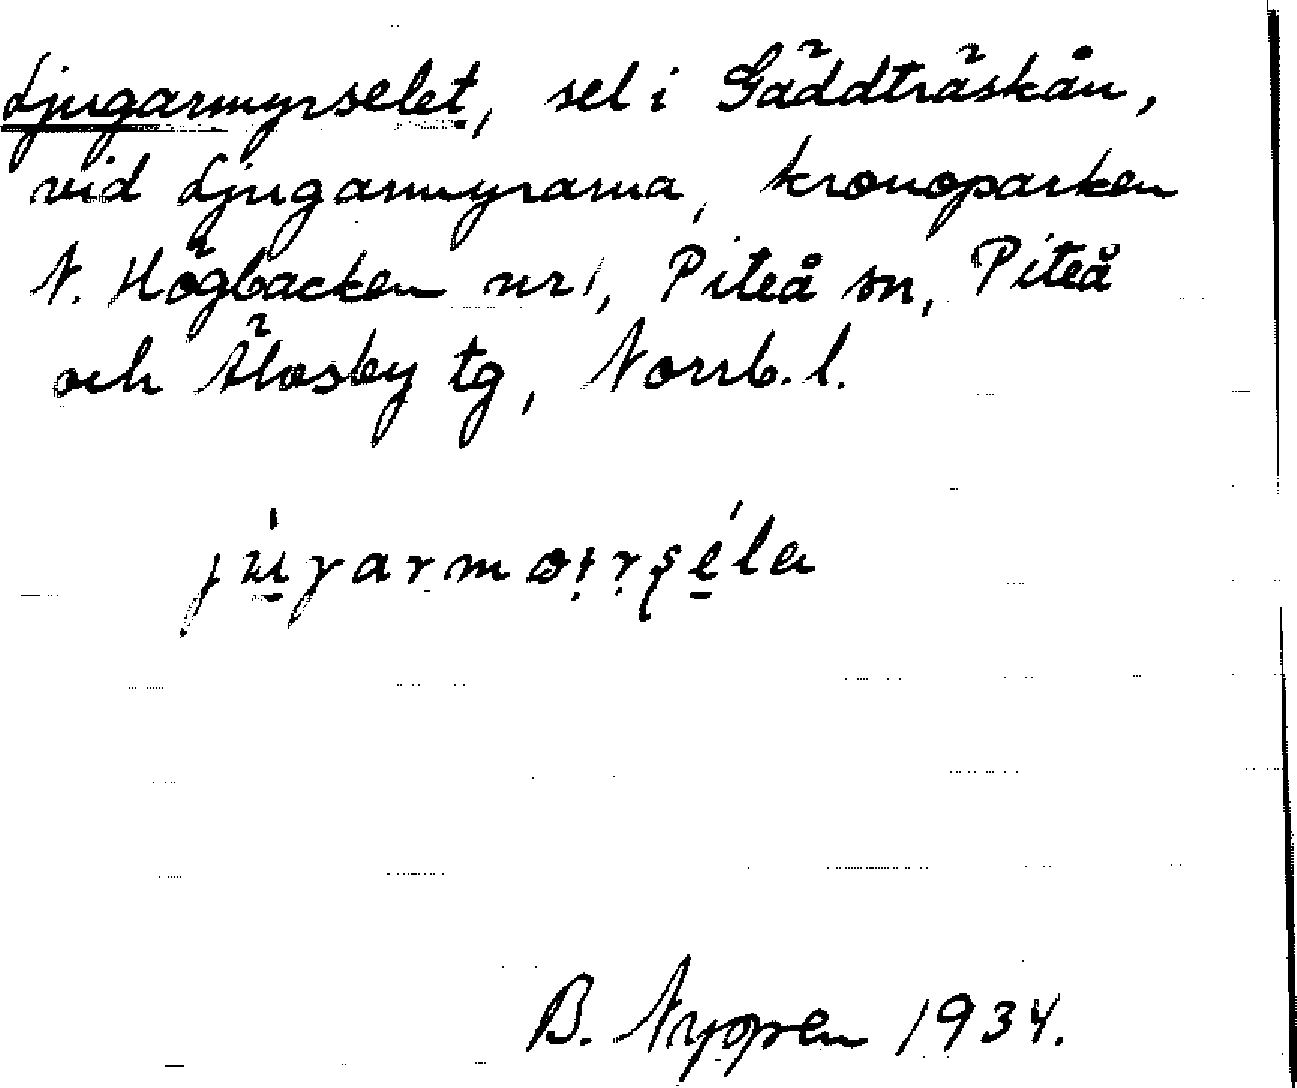 Ljugarmyrselet, sel i Gäddträskån,
vid Ljugarmyrarna, kronoparken
N. Högbacken nr 1, Piteå sn, Piteå
och Älvsby tg, Norrb. l.
B. Nygren 1934.